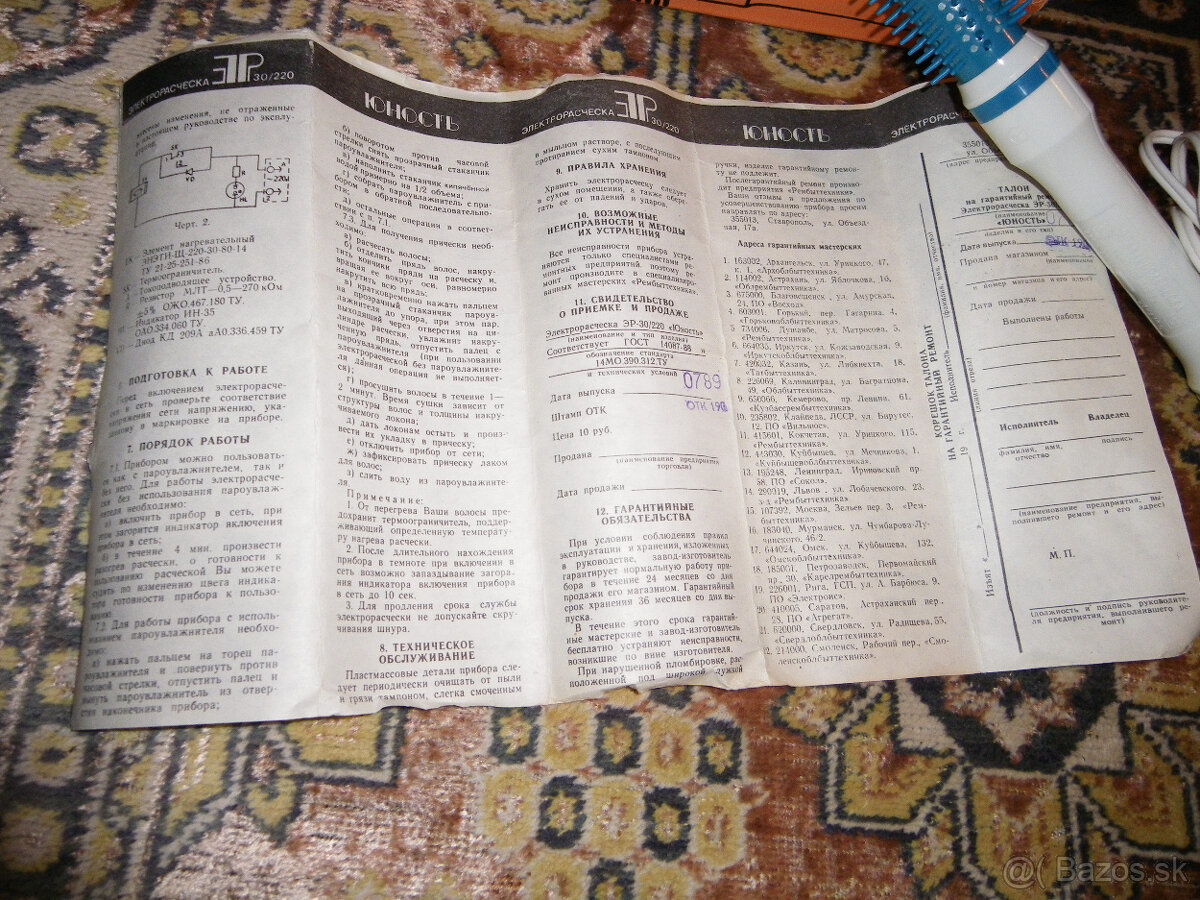 ЭЛЕКТРОРАСЧЕСКА ЭР 30/220
ЮНОСТЬ
ЭЛЕКТРОРАСЧЕСКА ЭР 30/220
ЮНОСТЬ
ЭЛЕКТРОРАСЧ
изменения, не отраженные
в настоящем руководстве по эксплу-
SK
VD
R
HL
~220В
Черт. 2.
Элемент нагревательный
ЭНЭТИ-Щ-220-30-80-14
ТУ 21-25-251-86
Термоограничитель.
Токоподводящее устройство.
Резистор МЛТ—0,5—270 кОм
±5% ОЖО.467.180 ТУ.
Индикатор ИН-35
ОАО.334.060 ТУ.
Диод КД 209А аА0.336.459 ТУ
ПОДГОТОВКА К РАБОТЕ
включением электрорасче-
в сеть проверьте соответствие
напряжения сети напряжению, ука-
занному в маркировке на приборе.
7. ПОРЯДОК РАБОТЫ
7.1. Прибором можно пользовать-
ся как с пароувлажнителем, так и
без него. Для работы электрорасче-
ски без использования пароувлаж-
нителя необходимо:
а) включить прибор в сеть, при
этом загорится индикатор включения
прибора в сеть;
б) в течение 4 мин. произвести
нагрев расчески, о готовности к
пользованию расческой Вы можете
судить по изменению цвета индика-
тора готовности прибора к пользо-
ванию.
7.2. Для работы прибора с исполь-
зованием пароувлажнителя необхо-
димо:
а) нажать пальцем на торец па-
роувлажнителя и повернуть против
часовой стрелки, отпустить палец и
вынуть пароувлажнитель из отвер-
стия наконечника прибора;
б) поворотом против часовой
стрелки снять прозрачный стаканчик
пароувлажнителя;
в) наполнить стаканчик кипяченой
водой примерно на 1/2 объема;
г) собрать пароувлажнитель с при-
бором в обратной последовательно-
сти;
д) остальные операции в соответ-
ствии с п. 7.1
7.3. Для получения прически необ-
ходимо:
а) расчесать волосы;
б) отделить прядь волос, накру-
тить кончики пряди на расческу и,
вращая ее вокруг оси, равномерно
накрутить всю прядь;
в) кратковременно нажать пальцем
на прозрачный стаканчик пароув-
лажнителя до упора, при этом пар,
выходящий через отверстия на ци-
линдре расчески, увлажнит накру-
ченную прядь, отпустить палец с
пароувлажнителя (при пользовании
электрорасческой без пароувлажните-
ля данная операция не выполняет-
ся);
г) просушить волосы в течение 1—
2 минут. Время сушки зависит от
структуры волос и толщины накру-
чиваемого локона;
д) дать локонам остыть и произ-
вести их укладку в прическу;
е) отключить прибор от сети;
ж) зафиксировать прическу лаком
для волос;
з) слить воду из пароувлажните-
ля.
Примечание:
1. От перегрева Ваши волосы пре-
дохранит термоограничитель, поддер-
живающий определенную температу-
ру нагрева расчески.
2. После длительного нахождения
прибора в темноте при включении в
сеть возможно запаздывание загора-
ния индикатора включения прибора
в сеть до 10 сек.
3. Для продления срока службы
электрорасчески не допускайте скру-
чивания шнура.
8. ТЕХНИЧЕСКОЕ
ОБСЛУЖИВАНИЕ
Пластмассовые детали прибора сле-
дует периодически очищать от пыли
и грязи тампоном, слегка смоченным
в мыльном растворе, с последующим
протиранием сухим тампоном
9. ПРАВИЛА ХРАНЕНИЯ
Хранить электрорасческу следует
в сухом помещении, а также обере-
гать ее от падений и ударов.
10. ВОЗМОЖНЫЕ
НЕИСПРАВНОСТИ И МЕТОДЫ
ИХ УСТРАНЕНИЯ
Все неисправности прибора устра-
няются только специалистами ре-
монтных предприятий, поэтому ре-
монт производите в специализиро-
ванных мастерских «Рембыттехники».
11. СВИДЕТЕЛЬСТВО
О ПРИЕМКЕ И ПРОДАЖЕ
Электрорасческа ЭР-30/220 «Юность»
(наименование и тип изделия)
Соответствует ГОСТ 14087-88 и
обозначение стандарта
14МО.390.312 ТУ
и технических условий
Дата выпуска 0789
Штамп ОТК ОТК 190
Цена 10 руб.
Продана
(наименование предприятия
торговли)
Дата продажи
12. ГАРАНТИЙНЫЕ
ОБЯЗАТЕЛЬСТВА
При условии соблюдения правил
эксплуатации и хранения, изложенных
в руководстве, завод-изготовитель
гарантирует нормальную работу при-
бора в течение 24 месяцев со дня
продажи его магазином. Гарантийный
срок хранения 36 месяцев со дня вы-
пуска.
В течение этого срока гарантий-
ные мастерские и завод-изготовитель
бесплатно устраняют неисправности,
возникшие по вине изготовителя.
При нарушенной пломбировке, рас-
положенной под широкой дужкой
ручки, изделие гарантийному ремон-
ту не подлежит.
Послегарантийный ремонт производ-
дит предприятия «Рембыттехники»
Ваши отзывы и предложения по
усовершенствованию прибора просим
направлять по адресу:
355013, Ставрополь, ул. Объезд-
ная, 17а.
Адреса гарантийных мастерских
1. 163002, Архангельск, ул. Урицкого, 47,
к. 1, «Архоблбыттехника».
2. 414002, Астрахань, ул. Яблочкова, 1б,
«Облрембыттехника».
3. 675000, Благовещенск, ул. Амурская,
24, ПО «Восход».
4. 603001, Горький, пер. Гагарина, 4,
«Горьковоблбыттехника».
5. 734006, Душанбе, ул. Матросова, 5,
«Рембыттехника».
6. 664035, Иркутск, ул. Кожзаводская, 9,
«Иркутскоблбыттехника».
7. 420032, Казань, ул. Либкнехта, 18,
«Татбыттехника».
8. 226069, Калининград, ул. Багратиона,
49, «Облбыттехника».
9. 650066, Кемерово, пр. Ленина, 61,
«Кузбассрембыттехника».
10. 235802, Клайпеда, ЛССР, ул. Бирутес,
12, ПО «Вильнос».
11. 415601, Кокчетав, ул. Урицкого, 115,
«Рембыттехника».
12. 443030, Куйбышев, ул. Мечникова, 1,
«Куйбышевоблбыттехника».
13. 195248, Ленинград, Ириновский пр
58, ПО «Сокол».
14. 290019, Львов, ул. Лобачевского, 23,
з-д «Рембыттехника».
15. 107392, Москва, Зельев пер. 3, «Рем-
быттехника».
16. 183040, Мурманск, ул. Чумбарова-Лу-
чинского, 46-2.
17. 644024, Омск, ул. Куйбышева, 132,
«Омскоблбыттехника».
18. 185051, Петрозаводск, Первомайский
пр., 30, «Карелрембыттехника».
19. 226001, Рига, ГСП, ул. А. Барбюса, 9,
ПО «Электронс».
20. 410005, Саратов, Астраханский пер.,
28, ПО «Агрегат».
21. 620000, Свердловск, ул. Радищева, 55,
«Свердлоблбыттехника».
22. 214000, Смоленск, Рабочий пер., «Смо-
ленскоблбыттехника».
КОРЕШОК ТАЛОНА
НА ГАРАНТИЙНЫЙ РЕМОНТ
Изъят «
19 г. Исполнитель
(фамилия, имя, отчество)
ТАЛОН
на гарантийный рем
Электрорасческа ЭР-30
(наименование
«ЮНОСТЬ»
изделия и его тип)
Дата выпуска ОТК 190
Продана магазином
(наименование
и номер магазина и его адрес)
Дата продажи
Выполнены работы
Исполнитель Владелец
фамилия, имя, подпись
отчество
(наименование предприятия, вы-
полнившего ремонт и его адрес)
М. П.
(должность и подпись руководите-
ля предприятия, выполнившего ре-
монт)
@( Bazos.sk